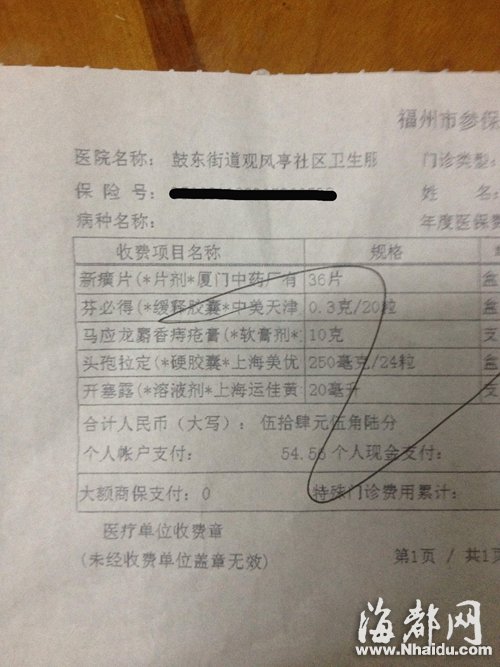 福州市参保
医院名称： 鼓东街道观风亭社区卫生服 门诊类型：
保 险 号： 姓 名
病种名称： 年度医保费
收费项目名称 规格
新癀片(*片剂*厦门中药厂有 36片 盒
芬必得(*缓释胶囊*中美天津 0.3克/20粒 盒
马应龙麝香痔疮膏(*软膏剂* 10克 支
头孢拉定(*硬胶囊*上海美优 250毫克/24粒 盒
开塞露(*溶液剂*上海运佳黄 20毫升 支
合计人民币（大写）： 伍拾肆元伍角陆分
个人帐户支付： 54.56 个人现金支付：
大额商保支付：0 特殊门诊费用累计：
医疗单位收费章
(未经收费单位盖章无效) 第1页 / 共1页
海都网
www.Nhaidu.com